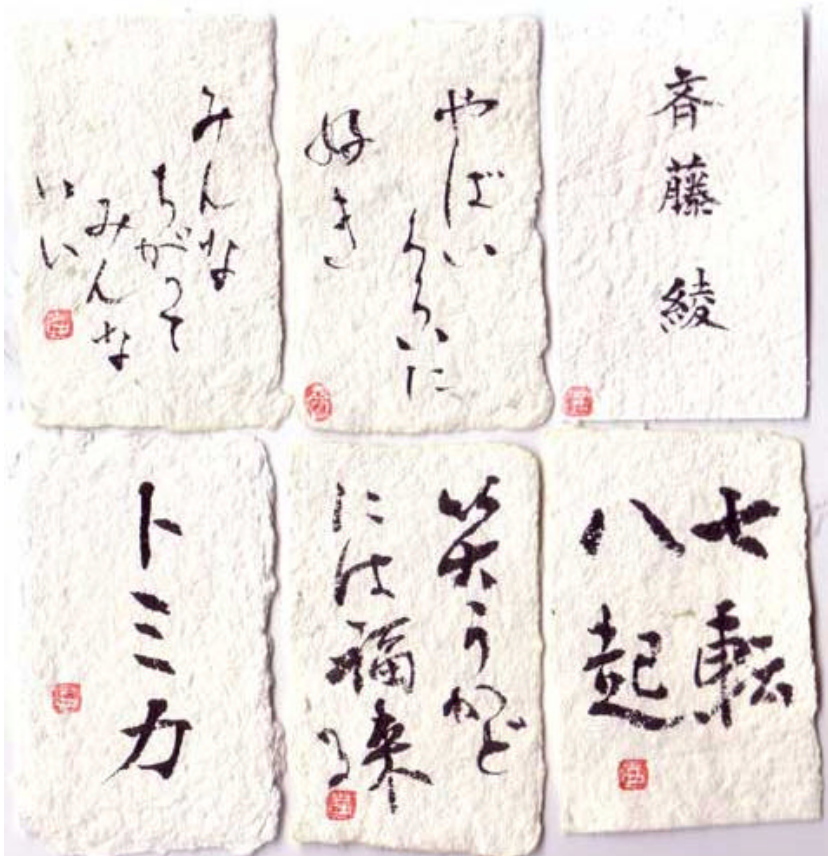 みんな
ちがって
みんな
いい
やばい
くらいに
好き
斉藤綾
トミカ
笑うかど
には福来る
七転
八起